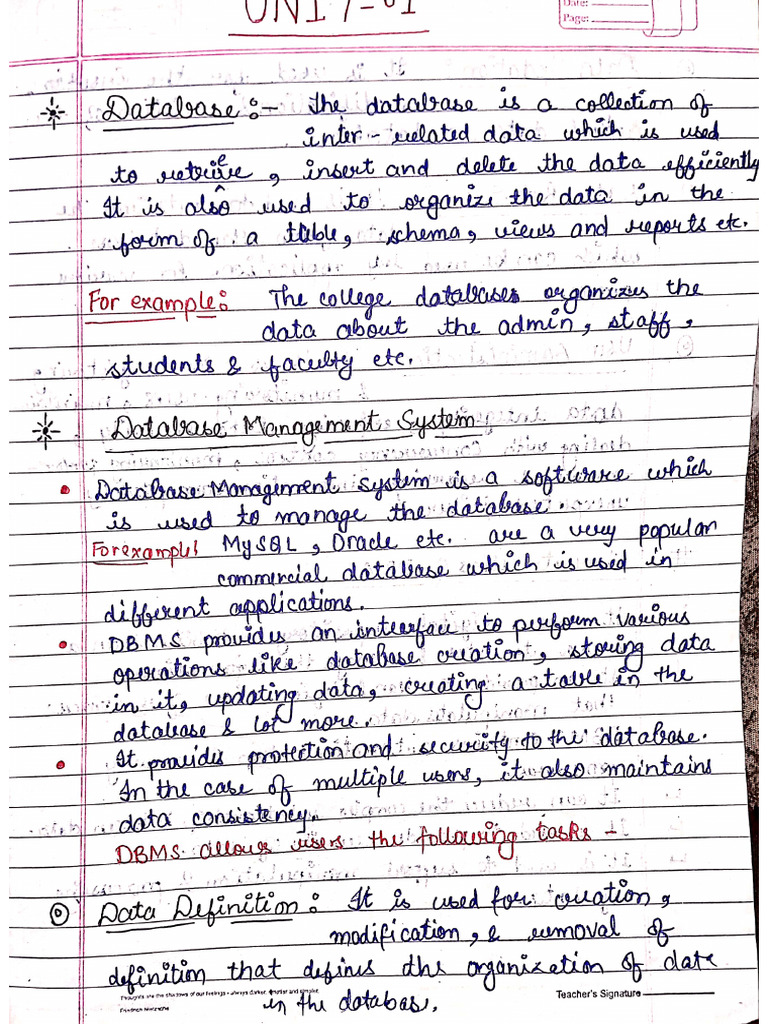 UNIT-01
Date:
Page:
Database :- The database is a collection of
inter-related data which is used
to retrieve, insert and delete the data efficiently
It is also used to organize the data in the
form of a table, schema, views and reports etc.
For example: The college databases organizes the
data about the admin, staff,
students & faculty etc.
Database Management System
Database Management System is a software which
is used to manage the database.
For example: MySQL, Oracle etc. are a very popular
commercial database which is used in
different applications.
DBMS provides an interface to perform various
operations like database creation, storing data
in it, updating data, creating a table in the
database & lot more.
It provides protection and security to the database.
In the case of multiple users, it also maintains
data consistency.
DBMS allows users the following tasks -
Data Definition: It is used for creation,
modification, & removal of
definition that defines the organization of data
in the database.
Thoughts are the shadows of our feelings - always darker, emptier and simpler.
Friedrich Nietzsche
Teacher's Signature